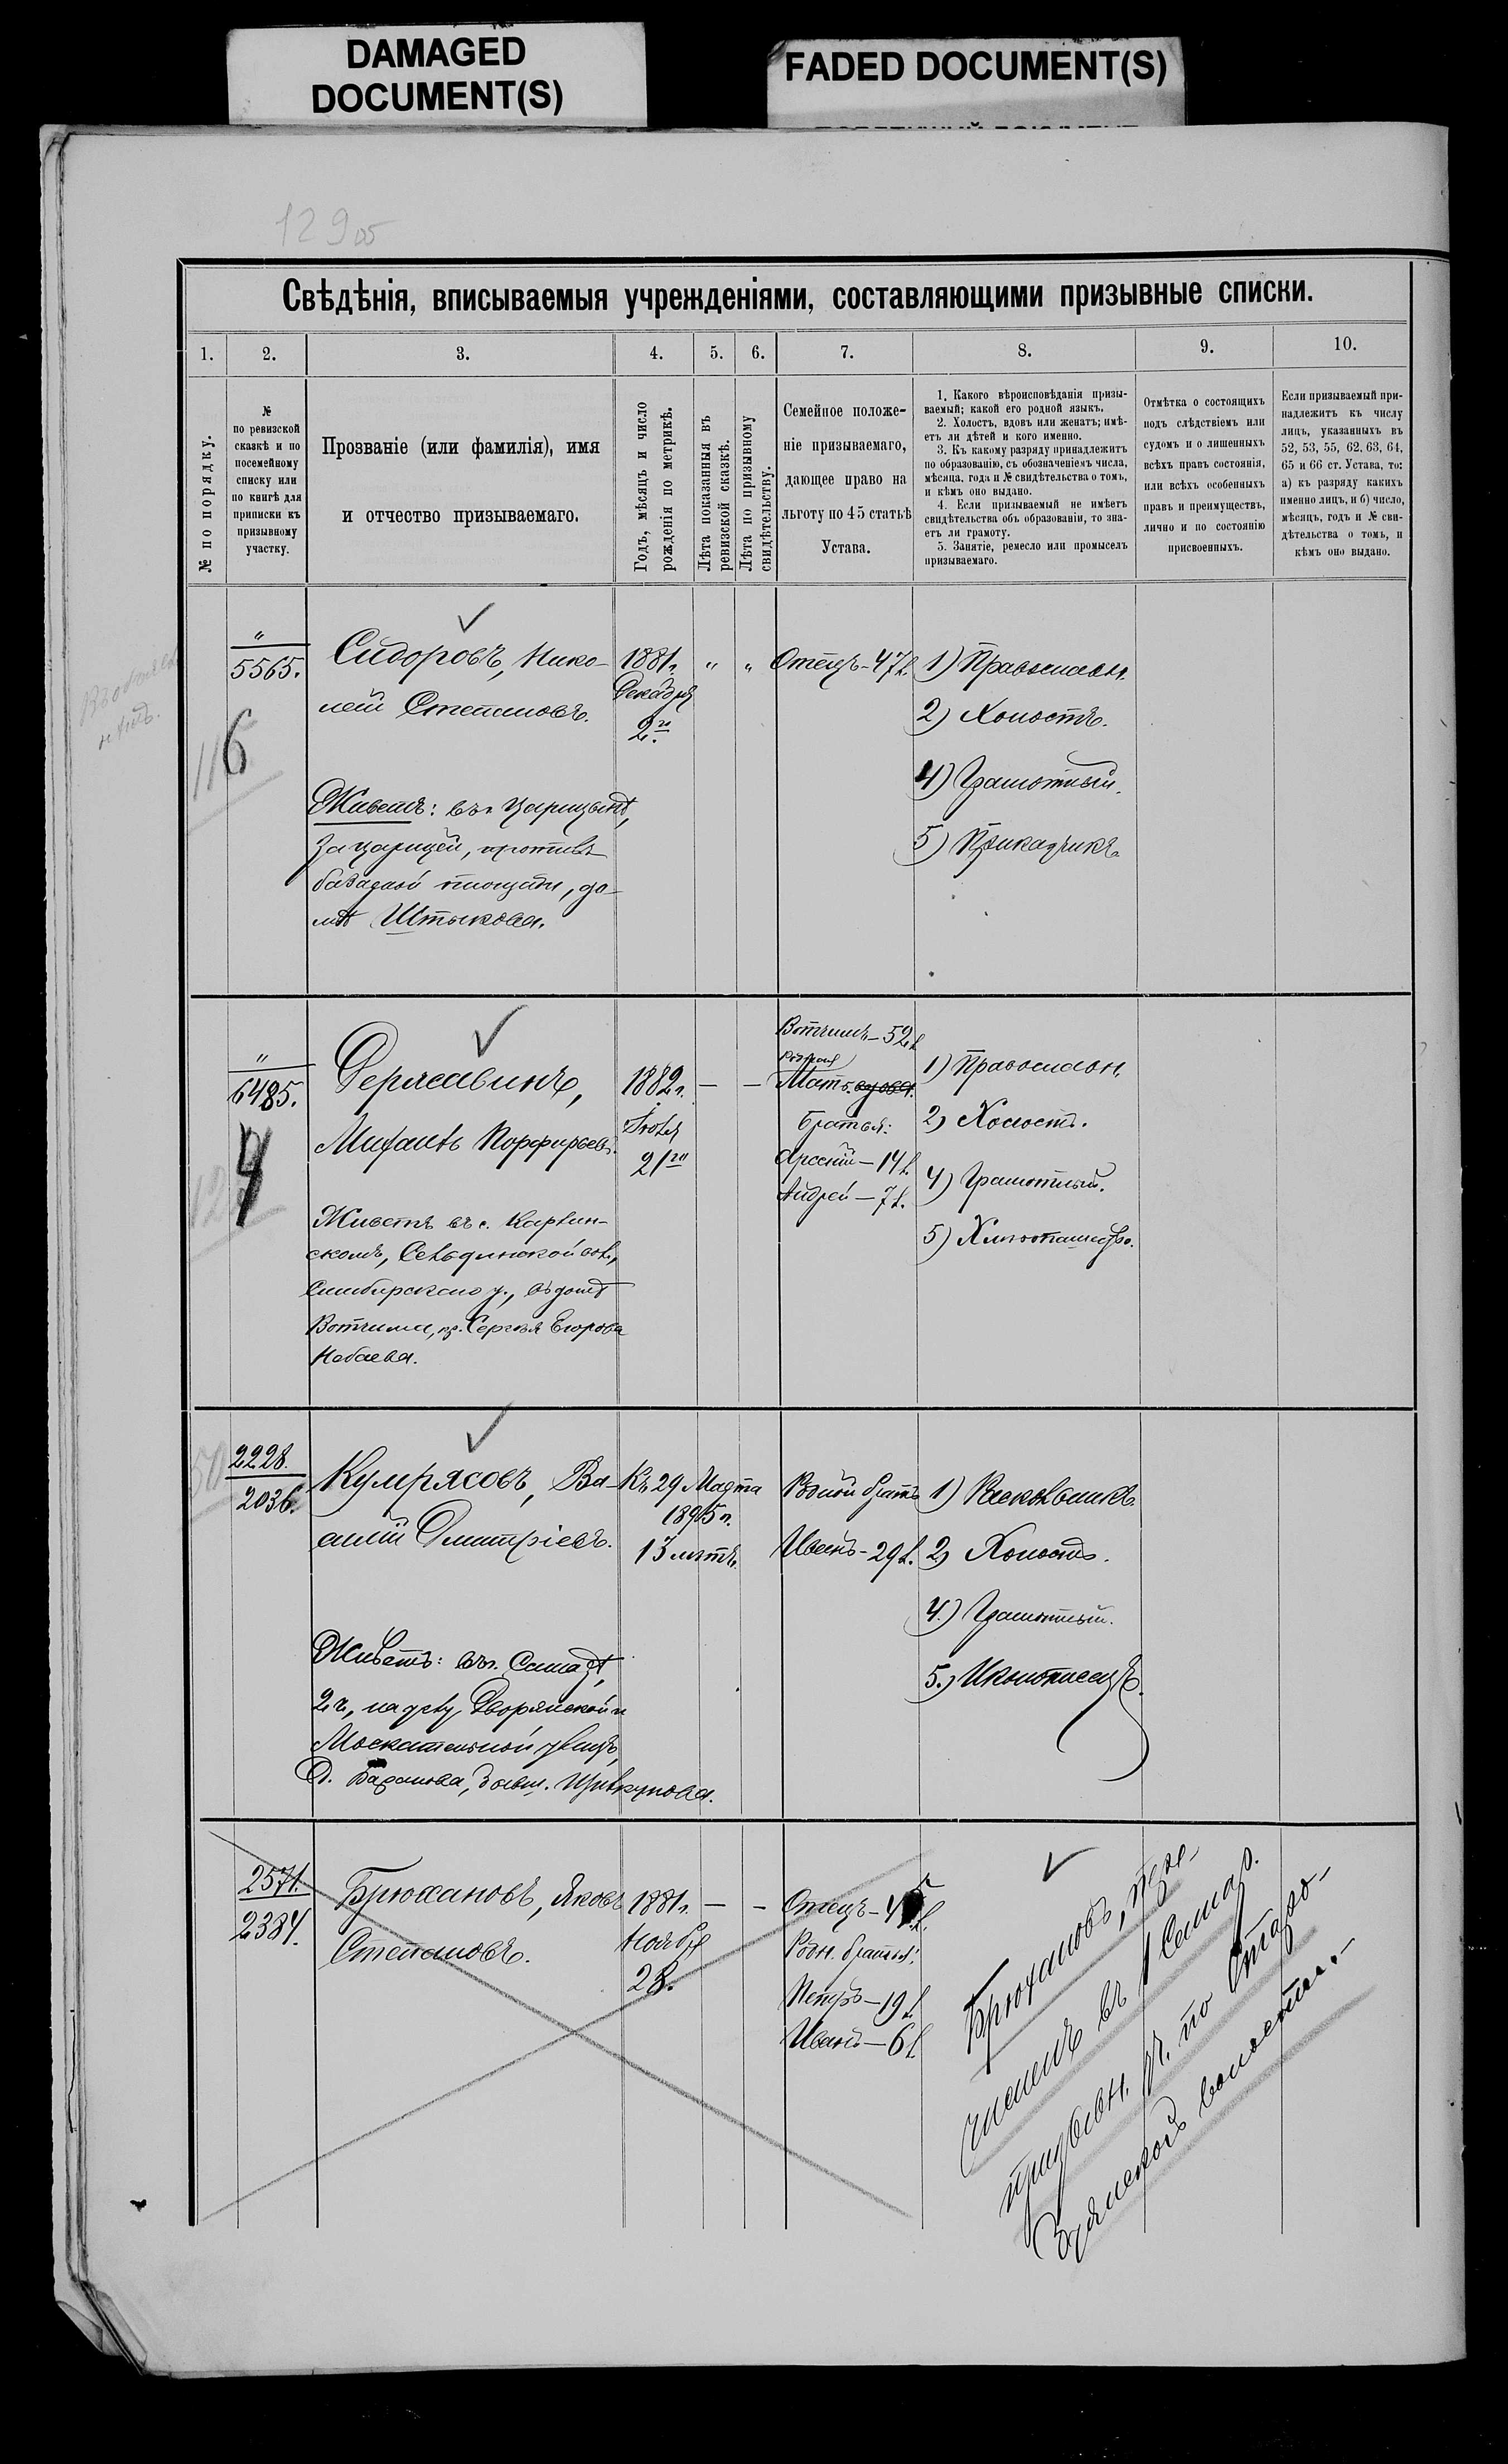 DAMAGED
DOCUMENT(S)
FADED DOCUMENT(S)
129 об
Свѣдѣнія, вписываемыя учрежденіями, составляющими призывные списки.
1.
2.
3.
4.
5.
6.
7.
8.
9.
10.
№ по порядку.
№
по ревизской
сказкѣ и по
посемейному
списку или
по книгѣ для
приписки къ
призывному
участку.
Прозваніе (или фамилія), имя
и отчество призываемаго.
Годъ, мѣсяцъ и число
рожденія по метрикѣ.
Лѣта показанныя въ
ревизской сказкѣ.
Лѣта по призывному
свидѣтельству.
Семейное положе-
ніе призываемаго,
дающее право на
льготу по 45 статьѣ
Устава.
1. Какого вѣроисповѣданія призы-
ваемый; какой его родной языкъ.
2. Холостъ, вдовъ или женатъ; имѣ-
етъ ли дѣтей и кого именно.
3. Къ какому разряду принадлежитъ
по образованію, съ обозначеніемъ числа,
мѣсяца, года и № свидѣтельства о томъ,
и кѣмъ оно выдано.
4. Если призываемый не имѣетъ
свидѣтельства объ образованіи, то зна-
етъ ли грамоту.
5. Занятіе, ремесло или промыселъ
призываемаго.
Отмѣтка о состоящихъ
подъ слѣдствіемъ или
судомъ и о лишенныхъ
всѣхъ правъ состоянія,
или всѣхъ особенныхъ
правъ и преимуществъ,
лично и по состоянію
присвоенныхъ.
Если призываемый при-
надлежитъ къ числу
лицъ, указанныхъ въ
52, 53, 55, 62, 63, 64,
65 и 66 ст. Устава, то:
а) къ разряду какихъ
именно лицъ, и б) число,
мѣсяцъ, годъ и № сви-
дѣтельства о томъ, и
кѣмъ оно выдано.
"
5565.
6
Сидоровъ, Нико-
лай Степановъ.
Живетъ: въ г. Царицынѣ,
За Царицей, противъ
базарной площади, до-
мѣ Штыкова.
1881 г.
Декабря
2го
"
"
Отецъ-47 л.
1) Православн.
2) Холостъ.
4) Грамотный.
5) Прикащикъ
"
6485.
Державинъ,
Михаилъ Порфирьевъ.
Живетъ въ с. Карлин-
скомъ, вол.,
Симбирскаго у., въ домѣ
Вотчима, кр. Сергѣя Егорова
1882 г.
Іюля
21го
—
—
Вотчимъ-52 л
родная
Мать вдова.
Братья:
Арсеній-14 л.
Андрей-7 л.
1) Православн.
2) Холостъ.
4) Грамотный.
5) Хлѣбопашество.
2228.
2036.
Кумрясовъ, Ва-
силій Дмитріевъ.
Живетъ: въ г. Самарѣ,
2 ч., на углу Дворянской и
Москательной улицъ,
д. Баранова, бывш.
Къ 29 Марта
1895 г.
13 лѣтъ.
Родной братъ
Иванъ-29 л.
1) Раскольникъ
2) Холостъ.
4.) Грамотный.
5.) Иконописецъ.
2571.
2384.
Брюхановъ, Яковъ
Степановъ.
1881 г.
Ноября
28.
—
—
Отецъ-45 л.
Родн. братья:
Петръ-19 л.
Иванъ-6 л.
Брюхановъ, пере-
численъ въ 1 Самар.
призывн. уч. по Старо-
волости.-